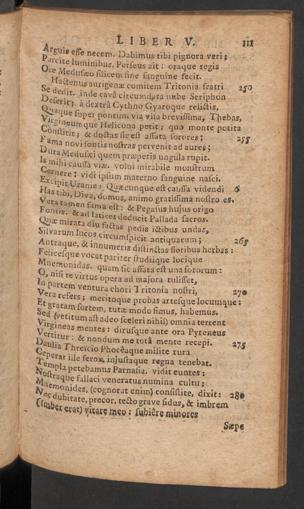 LIBER V. 111
Arguis esse necem. Dabimus tibi pignora veri;
Parcite luminibus, Perseus ait: oraque regis
Ore Medusæo silicem sine sanguine fecit.
Hactenus aurigenæ comitem Tritonia fratri 250
Se dedit. inde cavâ circumdata nube Seriphon
Deserit; à dextrâ Cythno Gyaroque relictis,
Quaque super pontum via visa brevissima, Thebas,
Virgineumque Helicona petit; quo monte potita
Constitit; & doctas sic est affata sorores: 255
Fama novi fontis nostras pervenit ad aures;
Dura Medusæi quem præpetis ungula rupit.
Is mihi caussa viæ. volui mirabile monstrum
Cernere: vidi ipsum materno sanguine nasci.
Excipit Uranie: Quæcunque est caussa videndi
Has tibi, Diva, domos, animo gratissima nostro es.
Vera tamen fama est: & Pegasus hujus origo
Fontis. & ad latices deducit Pallada sacros.
Quæ mirata diu factas pedis ictibus undas,
Silvarum lucos circumspicit antiquarum; 265
Antraque, & innumeris distinctas floribus herbas:
Felicesque vocat pariter studiique locique
Mnemonidas. quam sic affata est una sororum:
O, nisi te virtus opera ad majora tulisset,
In partem ventura chori Tritonia nostri, 270
Vera refers; meritoque probas artesque locumque:
Et gratam sortem, tutæ modo simus, habemus.
Sed (vetitum est adeo sceleri nihil) omnia terrent
Virgineas mentes: dirusque ante ora Pyreneus
Vertitur: & nondum me totâ mente recepi. 275
Daulia Threïcio Phocêaque milite rura
Ceperat ille ferox, injustaque regna tenebat.
Templa petebamus Parnasia. vidit euntes:
Nostraque fallaci veneratus numina cultu;
Mæonides, (cognorat enim) consistite, dixit: 280
Nec dubitate, precor, tecto grave sidus, & imbrem
(Imber erat) vitare meo: subiêre minores
Sæpe